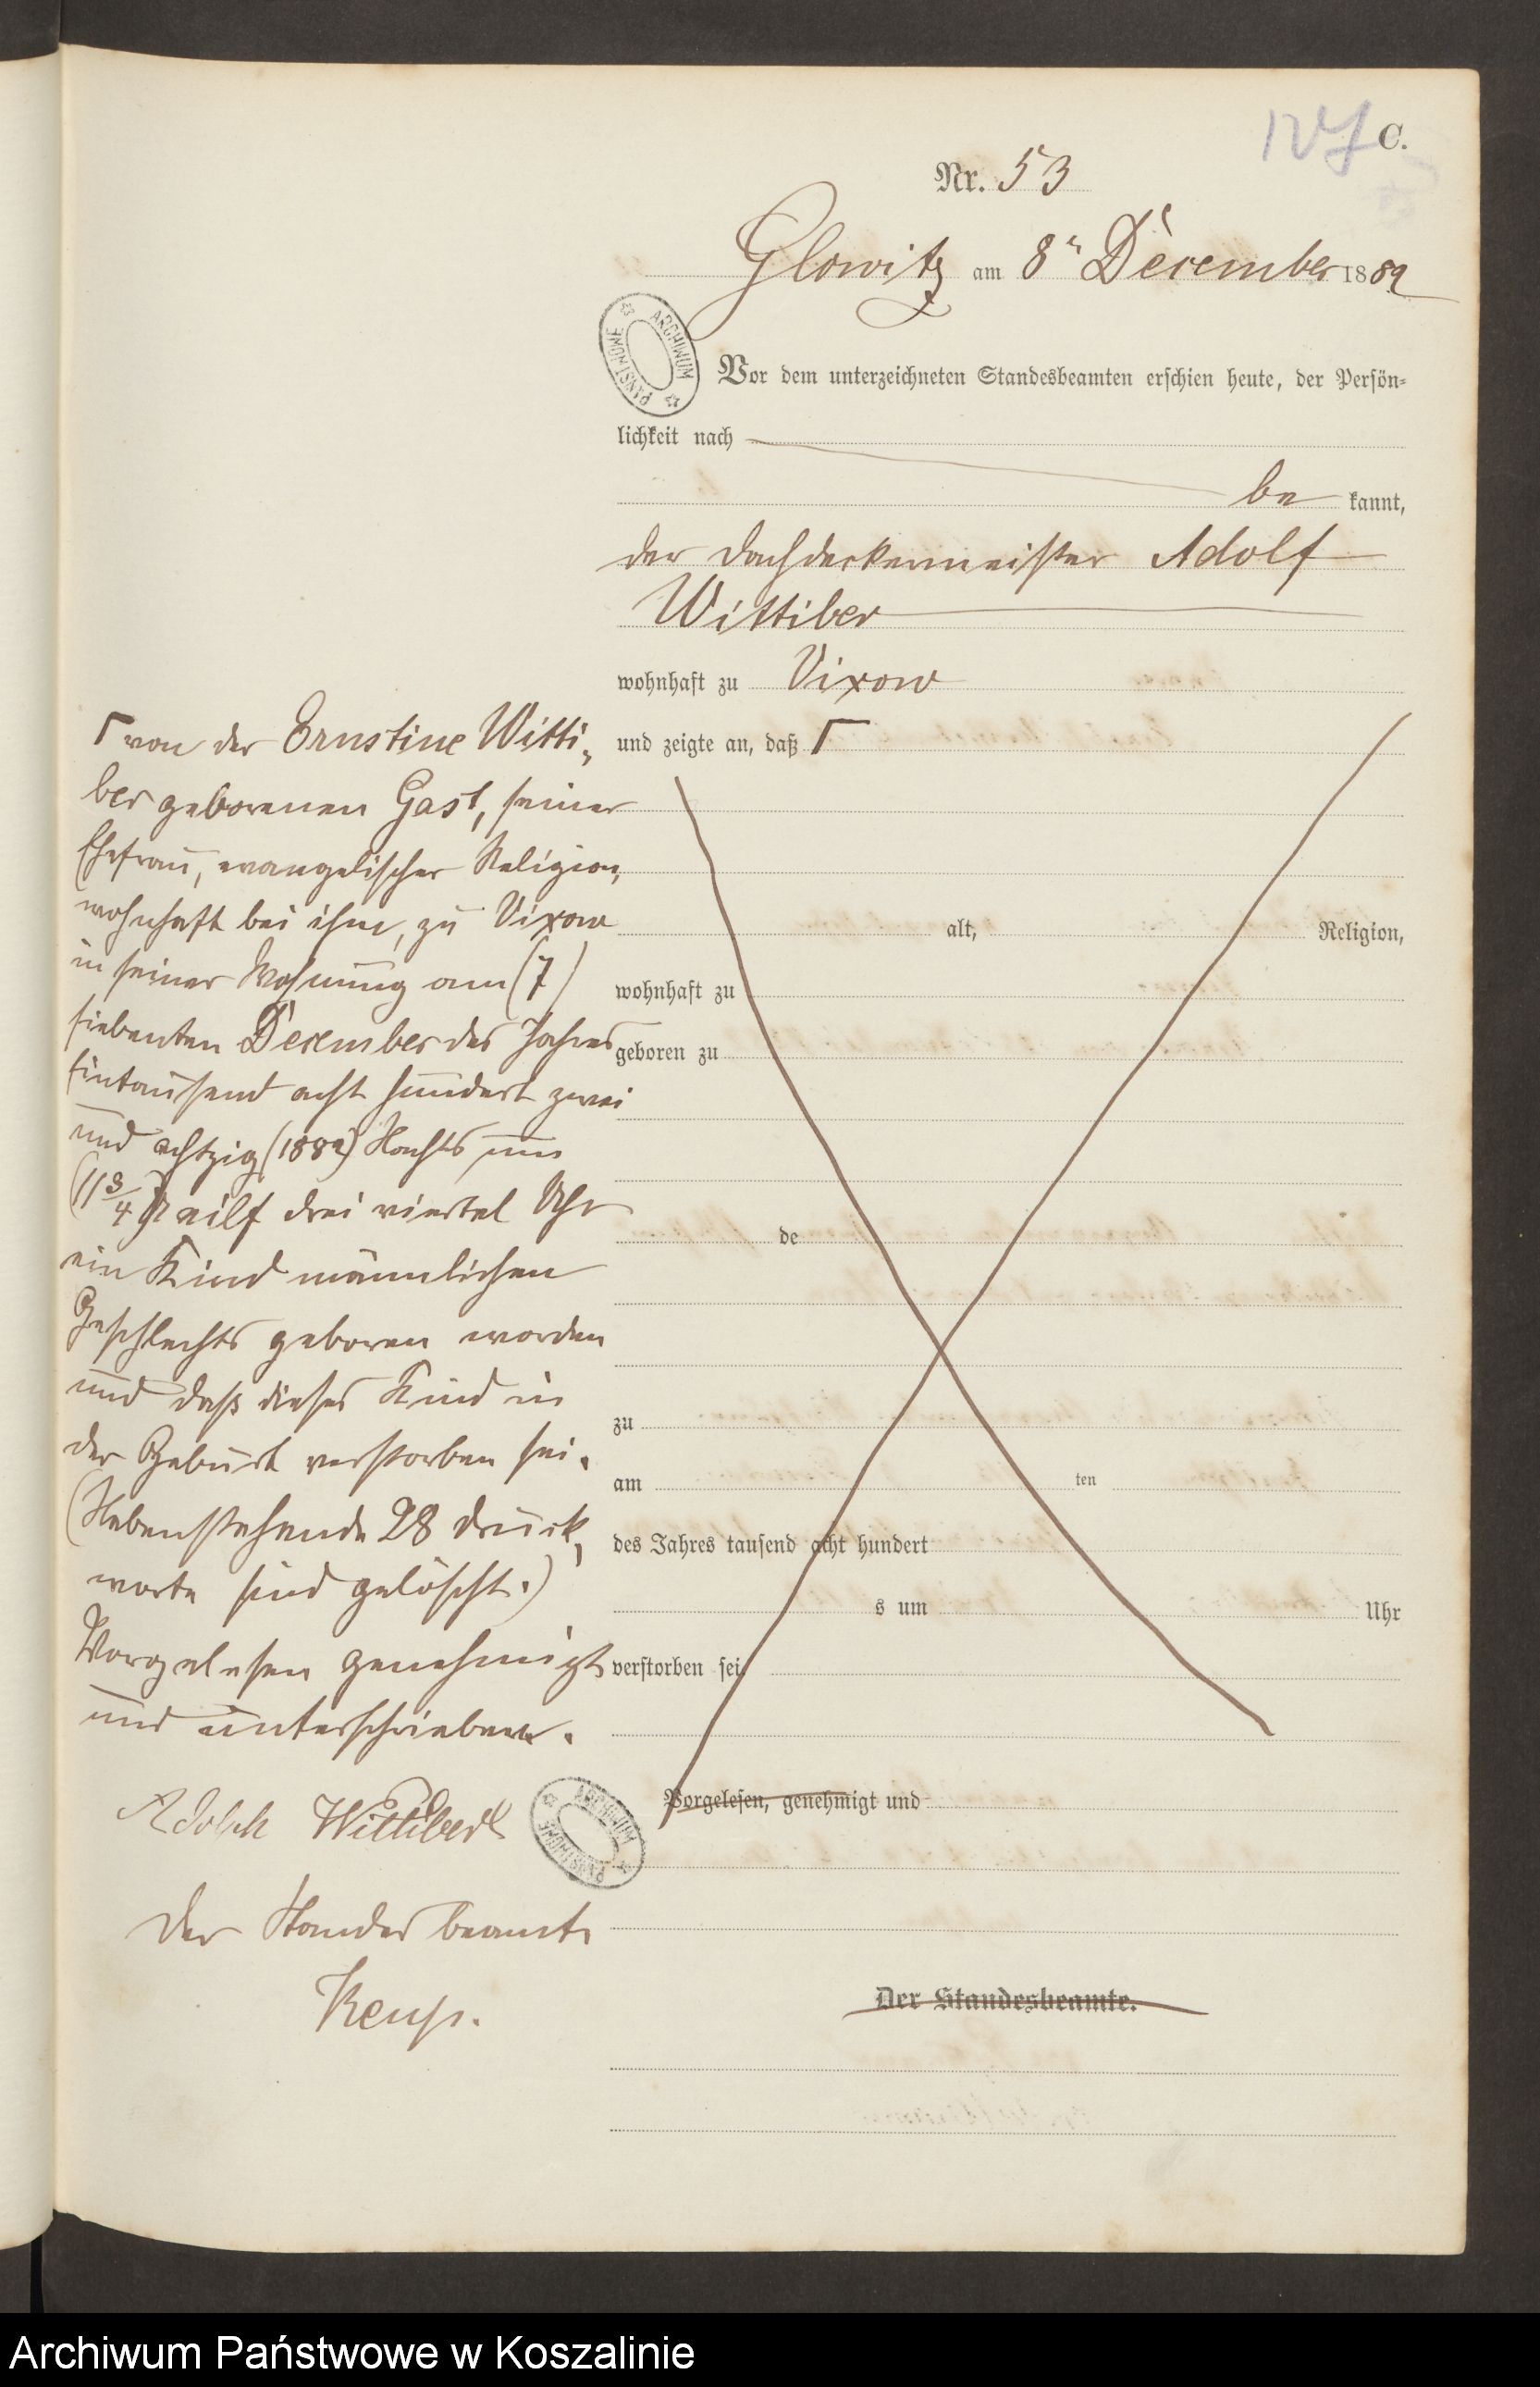 C.
Nr. 53
Glowitz am 8ten December 1882
ARCHIWUM PAŃSTWOWE
Vor dem unterzeichneten Standesbeamten erschien heute, der Persön-
lichkeit nach
be kannt,
der Dachdeckermeister Adolf
Wittiber
wohnhaft zu Vixow
und zeigte an, daß Γ
alt, Religion,
wohnhaft zu
geboren zu
de
zu
am ten
des Jahres tausend acht hundert
s um Uhr
verstorben sei
Vorgelesen, genehmigt und
Der Standesbeamte.
Γ von der Ernstine Witti-
ber geborenen Gast, seiner
Ehefrau, evangelischer Religion,
wohnhaft bei ihm, zu Vixow
in seiner Wohnung am (7)
siebenten December des Jahres
Eintausend acht hundert zwei
und achtzig (1882) Nachts um
(11 3/4) eilf drei viertel Uhr
ein Kind männlichen
Geschlechts geboren worden
und daß dieses Kind in
der Geburt verstorben sei.
(Nebenstehende 28 Druck-
worte sind gelöscht.)
Vorgelesen genehmigt
und unterschrieben.
Adolph Wittiber
ARCHIWUM PAŃSTWOWE
Der Standesbeamte
Archiwum Państwowe w Koszalinie